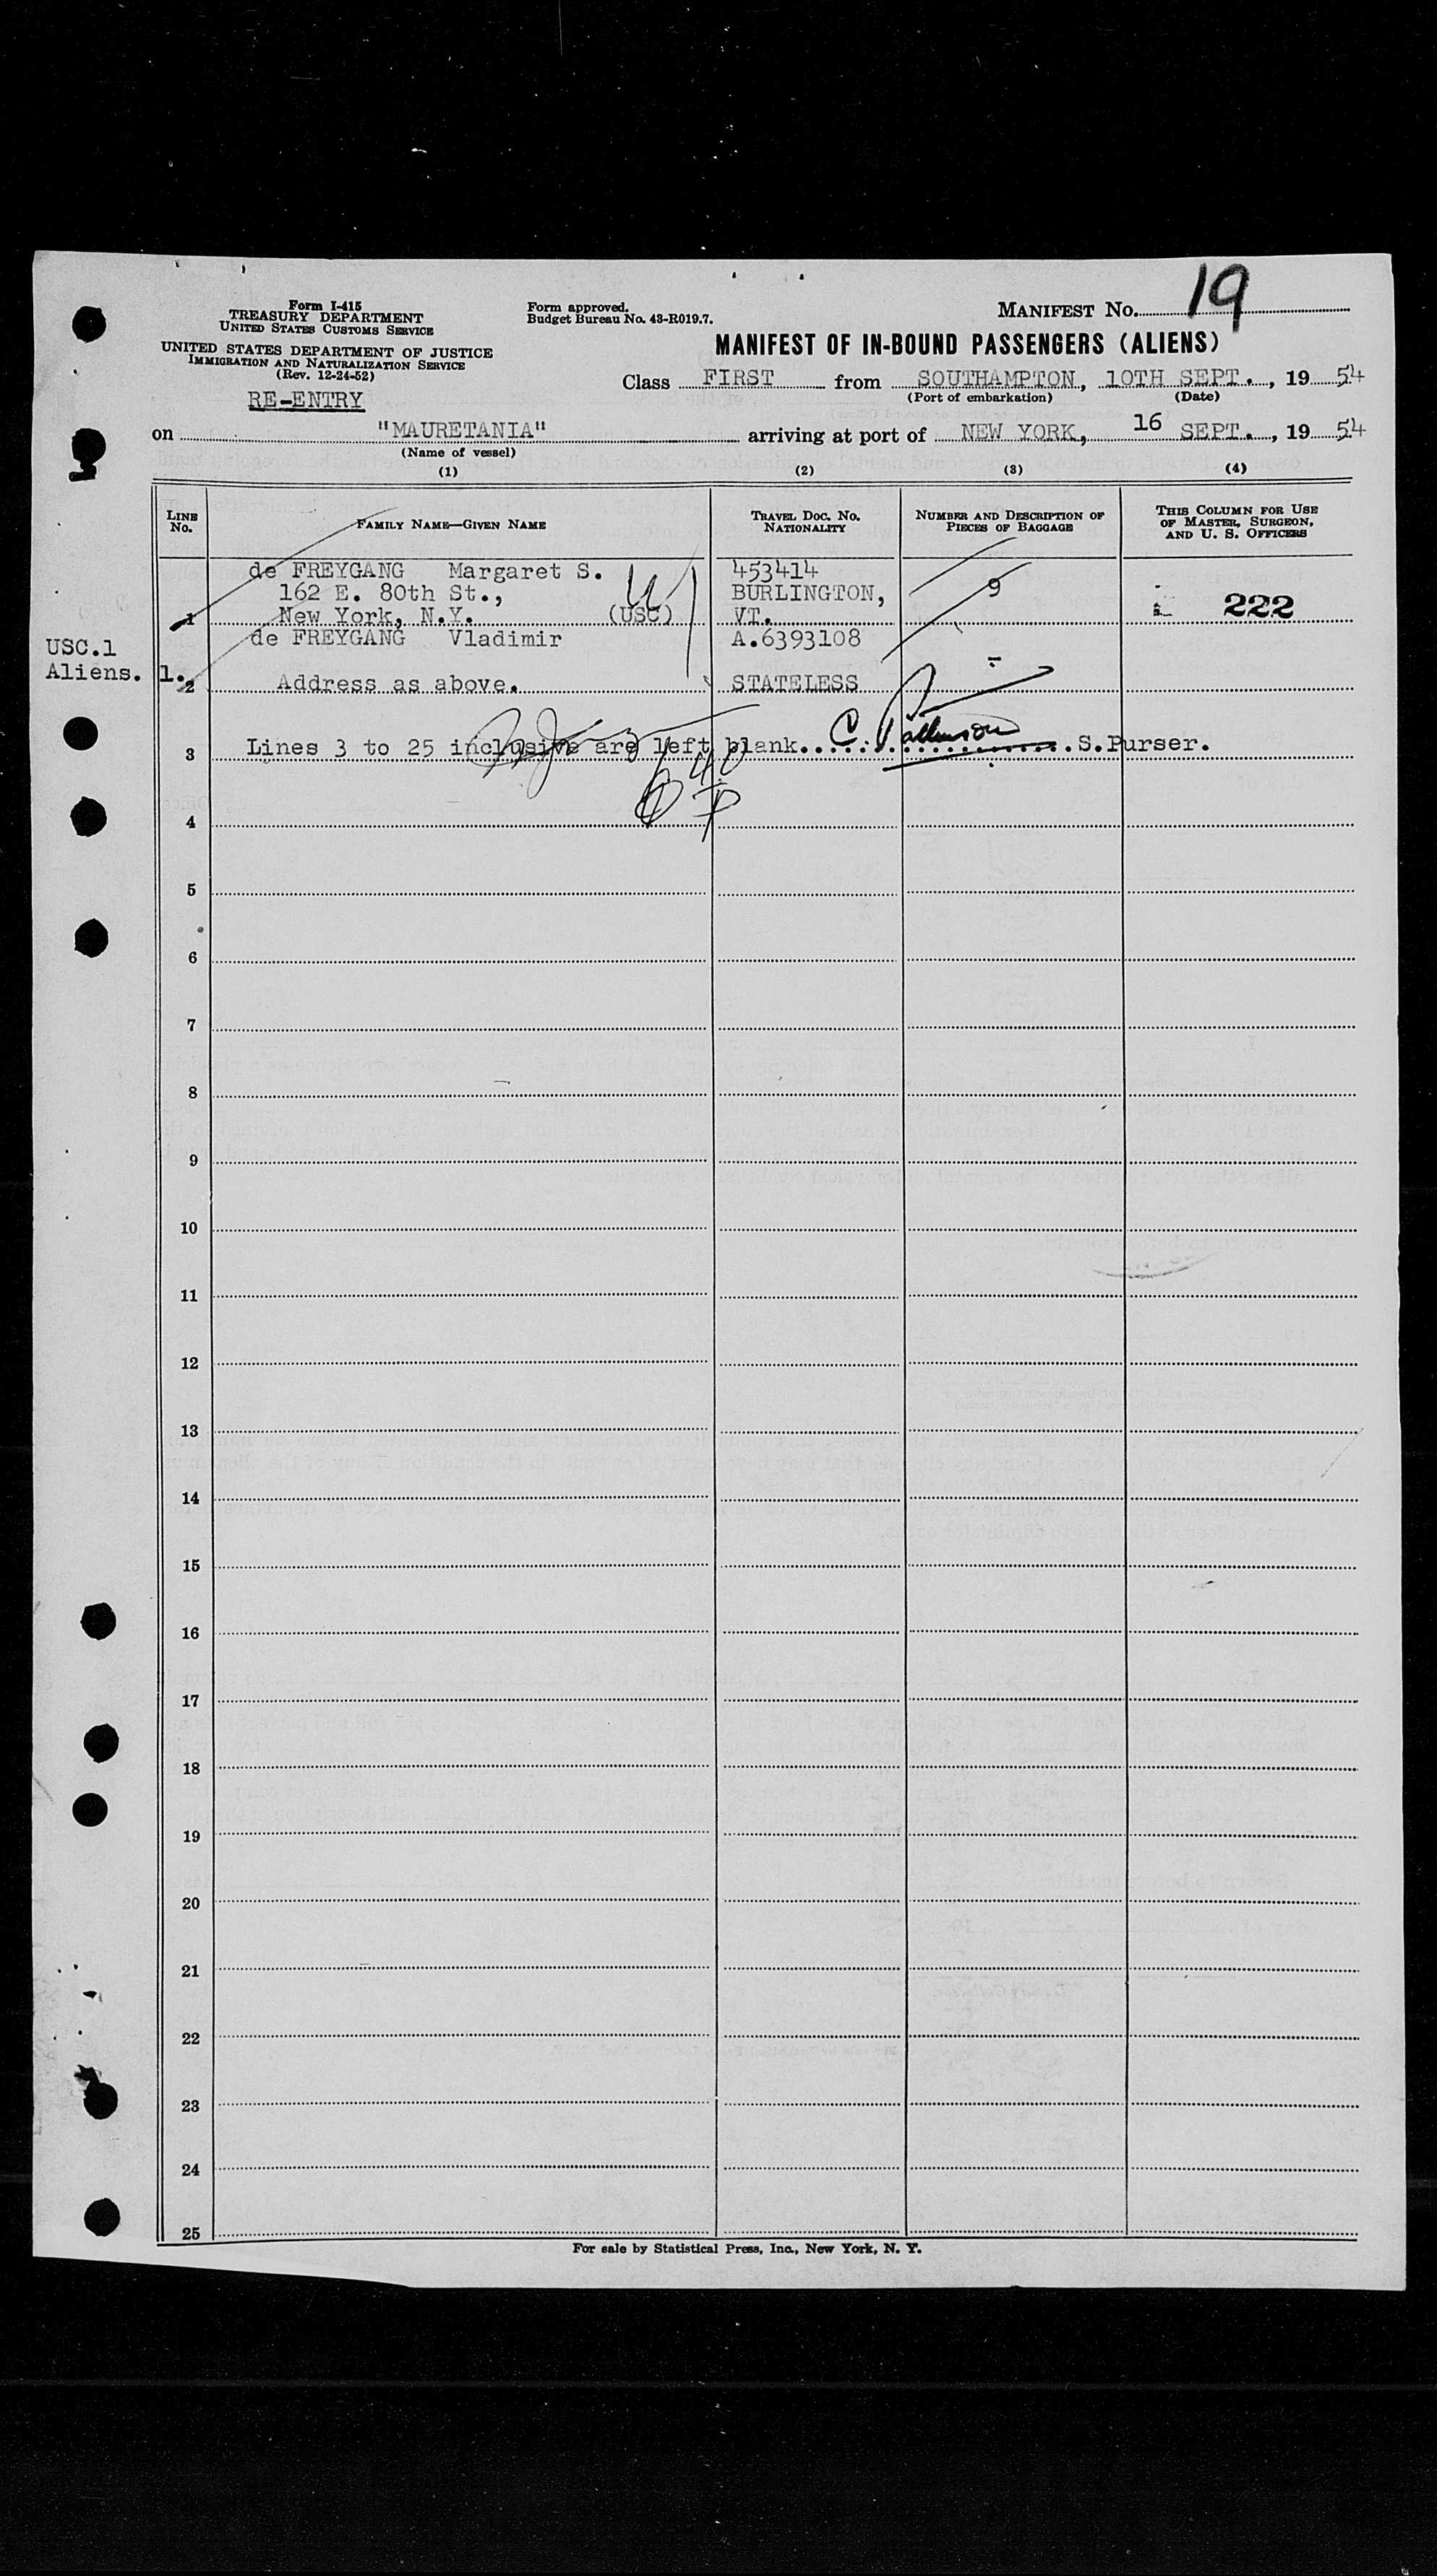 MANIFEST No. 19
Form I-415
TREASURY DEPARTMENT
UNITED STATES CUSTOMS SERVICE
UNITED STATES DEPARTMENT OF JUSTICE
IMMIGRATION AND NATURALIZATION SERVICE
(Rev. 12-24-52)
RE-ENTRY
Form approved.
Budget Bureau No. 43-R019.7.
MANIFEST OF IN-BOUND PASSENGERS (ALIENS)
Class FIRST from SOUTHAMPTON, 10TH SEPT., 1954
(Port of embarkation) (Date)
on "MAURETANIA" arriving at port of NEW YORK, 16 SEPT., 1954
(Name of vessel)
(1) (2) (3) (4)
LINE No. FAMILY NAME—GIVEN NAME TRAVEL DOC. NO. NATIONALITY NUMBER AND DESCRIPTION OF PIECES OF BAGGAGE THIS COLUMN FOR USE OF MASTER, SURGEON, AND U. S. OFFICERS
de FREYGANG Margaret S. 453414
162 E. 80th St., BURLINGTON, 9
1 New York, N.Y. (USC) VT. 222
de FREYGANG Vladimir A.6393108
USC.1
Aliens. 1.
2 Address as above. STATELESS -
3 Lines 3 to 25 inclusive are left blank. S.Purser.
4
5
6
7
8
9
10
11
12
13
14
15
16
17
18
19
20
21
22
23
24
25
For sale by Statistical Press, Inc., New York, N. Y.